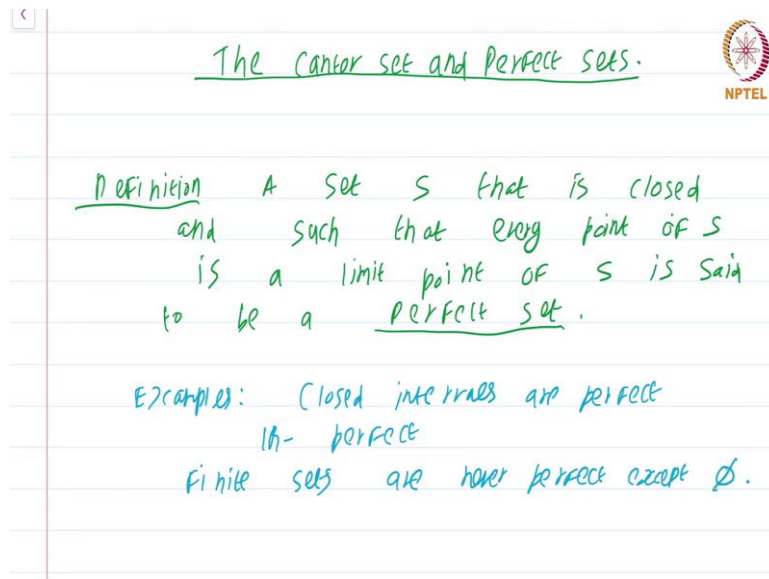 The Cantor set and Perfect sets.
NPTEL
Definition A set S that is closed
and such that every point of S
is a limit point of S is said
to be a perfect set.
Examples: Closed intervals are perfect
IR - perfect
Finite sets are never perfect except ∅.